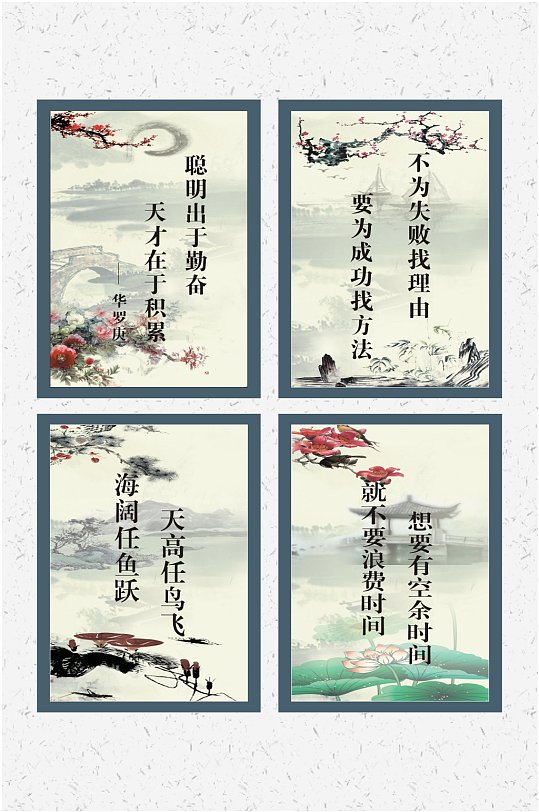 聪明出于勤奋
天才在于积累
——华罗庚
不为失败找理由
要为成功找方法
海阔任鱼跃
天高任鸟飞
想要有空余时间
就不要浪费时间